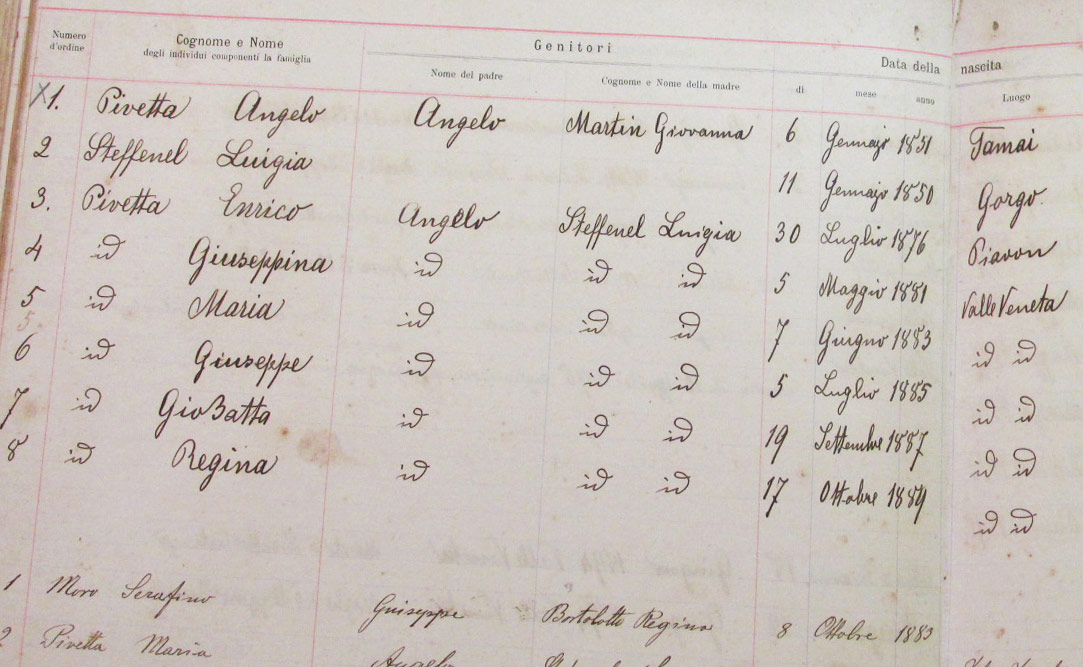 Numero d'ordine Cognome e Nome degli individui componenti la famiglia Genitori Nome del padre Cognome e Nome della madre Data della nascita di mese anno Luogo
X1. Pivetta Angelo Angelo Martin Giovanna 6 Gennajo 1851 Tamai
2 Steffenel Luigia 11 Gennajo 1850 Gorgo.
3. Pivetta Enrico Angelo Steffenel Luigia 30 Luglio 1876 Piavon
4 id Giuseppina id id id 5 Maggio 1881 Valle Veneta
5 id Maria id id id 7 Giugno 1883 id id
5.
6 id Giuseppe id id id 5 Luglio 1885 id id
7 id GioBatta id id id 19 Settembre 1887 id id
8 id Regina id id id 17 Ottobre 1889 id id
1 Moro Serafino Guiseppe Bortolotto Regina 8 Ottobre 1883
2 Pivetta Maria Angelo